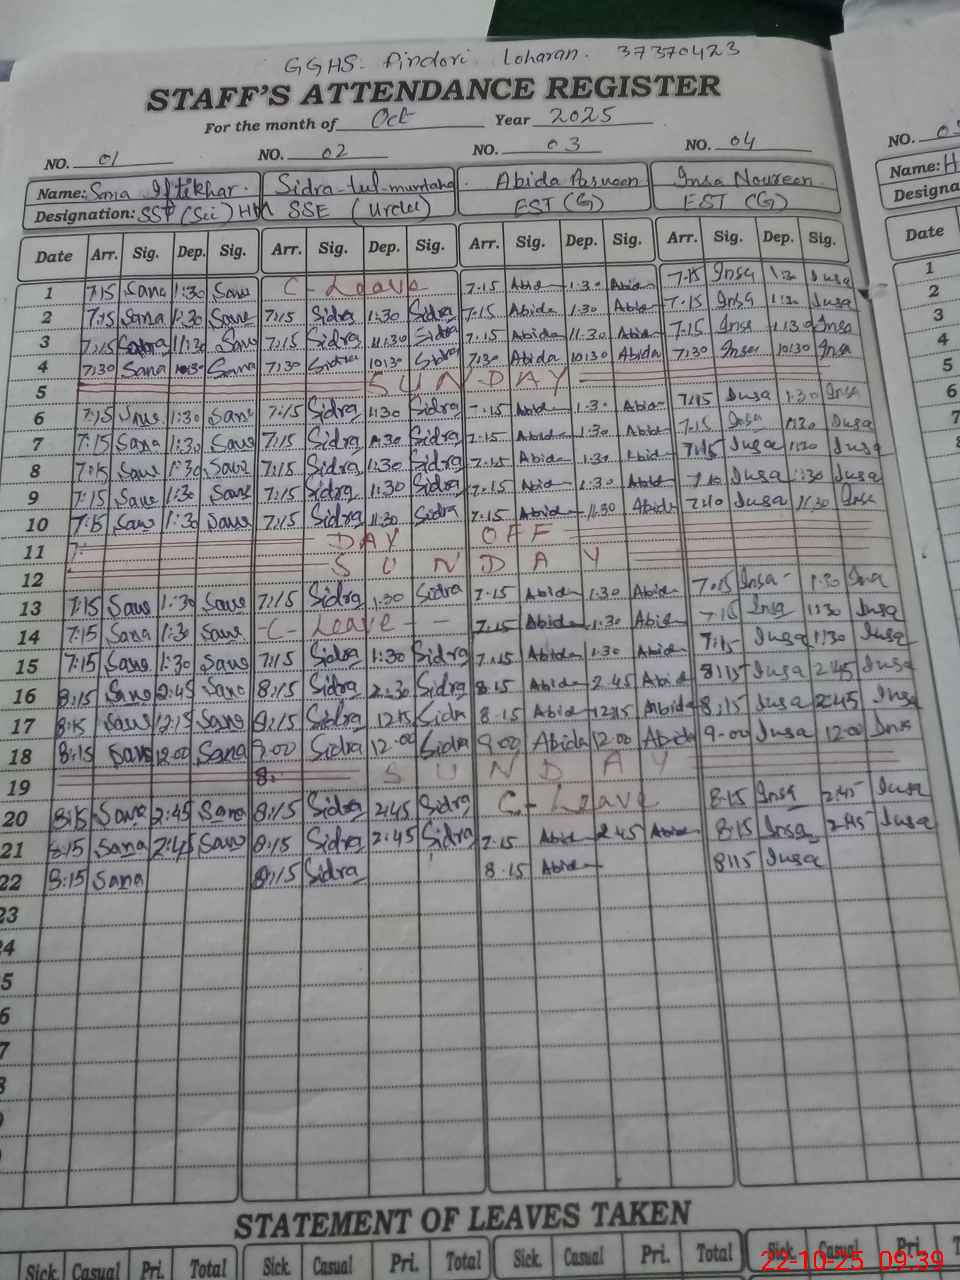 GGHS. Pindori Loharan. 37370423
STAFF'S ATTENDANCE REGISTER
For the month of Oct Year 2025
NO. 01 NO. 02 NO. 03 NO. 04 NO.
Name: Sana Iftikhar. Sidra-tul-muntaha. Abida Parveen Insa Noureen Name: H
Designation: SST (Sci) HM SSE (Urdu) EST (G) EST (G) Designa
Date Arr. Sig. Dep. Sig. Arr. Sig. Dep. Sig. Arr. Sig. Dep. Sig. Arr. Sig. Dep. Sig. Date
1 7:15 Sana 1:30 Sana C-Leave 7.15 Abida 1.30 Abida 7.15 Insa 1:30 Insa 1
2 7:15 Sana 1:30 Sana 7:15 Sidra 1:30 Sidra 7.15 Abida 1.30 Abida 7.15 Insa 1:30 Insa 2
3 7:15 Sana 11:30 Sana 7:15 Sidra 11:30 Sidra 7.15 Abida 11.30 Abida 7.15 Insa 11:30 Insa 3
4 7:30 Sana 10:30 Sana 7:30 Sidra 10:30 Sidra 7:30 Abida 10:30 Abida 7:30 Insa 10:30 Insa 4
5 SUNDAY 5
6 7:15 Sana 1:30 Sana 7:15 Sidra 1:30 Sidra 7.15 Abida 1.30 Abida 7:15 Insa 1:30 Insa 6
7 7:15 Sana 1:30 Sana 7:15 Sidra 1:30 Sidra 7.15 Abida 1.30 Abida 7.15 Insa 1:30 Insa 7
8 7:15 Sana 1:30 Sana 7:15 Sidra 1:30 Sidra 7.15 Abida 1.30 Abida 7:15 Insa 1:30 Insa
9 7:15 Sana 1:30 Sana 7:15 Sidra 1:30 Sidra 7.15 Abida 1.30 Abida 7.10 Insa 1:30 Insa
10 7:15 Sana 1:30 Sana 7:15 Sidra 11:30 Sidra 7.15 Abida 11.30 Abida 7:10 Insa 11:30 Insa
11 DAY OFF
12 SUNDAY
13 7:15 Sana 1:30 Sana 7:15 Sidra 1:30 Sidra 7.15 Abida 1.30 Abida 7.15 Insa 1:30 Insa
14 7:15 Sana 1:30 Sana -C- Leave - - 7.15 Abida 1.30 Abida 7.15 Insa 1:30 Insa
15 7:15 Sana 1:30 Sana 7:15 Sidra 1:30 Sidra 7.15 Abida 1.30 Abida 7:15 Insa 1:30 Insa
16 8:15 Sana 2:45 Sana 8:15 Sidra 2:30 Sidra 8.15 Abida 2.45 Abida 8:15 Insa 2:45 Insa
17 8:15 Sana 12:15 Sana 8:15 Sidra 12:15 Sidra 8.15 Abida 12:15 Abida 8:15 Insa 2:45 Insa
18 8:15 Sana 12:00 Sana 9:00 Sidra 12:00 Sidra 9.00 Abida 12.00 Abida 9-00 Insa 12:00 Insa
19 8: SUNDAY
20 8:15 Sana 2:45 Sana 8:15 Sidra 2:45 Sidra C-Leave 8:15 Insa 2:45 Insa
21 8:15 Sana 2:45 Sana 8:15 Sidra 2:45 Sidra 7.15 Abida 2.45 Abida 8:15 Insa 2:45 Insa
22 8:15 Sana 8:15 Sidra 8.15 Abida 8:15 Insa
23
4
5
6
7
8
STATEMENT OF LEAVES TAKEN
Sick. Casual Pri. Total Sick. Casual Pri. Total Sick. Casual Pri. Total Sick. Casual Pri. Total
22-10-25 09:39